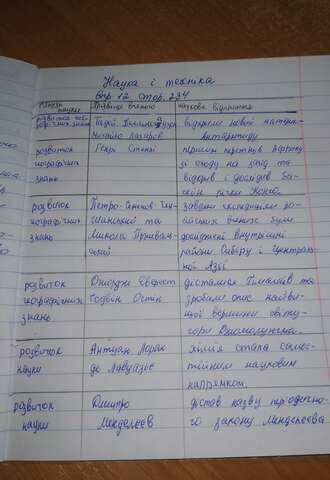 Наука і техніка
впр 12 стор. 234
Галузь науки Прізвище вченого наукове відкриття
розвиток географічних знань
Михайло Лазарєв
відкрили новий материк-
Антарктиду
розвиток
географічних
знань
Генрі Стенлі
першим перетнув Африку
зі сходу на захід та
відкрив і дослідив ба-
сейн річки Конго.
розвиток
географічних
знань
Петро Семенов-Тян-
Шанський та
Микола Пржеваль-
ський
завдяки експедиціям ро-
сійських вчених були
досліджені внутрішні
райони Сибіру і Централь-
ної Азії
розвиток
географічних
знань
Джордж Еверест
Годвін Остін
дістались Гімалаїв та
зробили опис найви-
щої вершини світу-
гори Джомолунгма.
розвиток
науки
Антуан Лоран
де Лавуазьє
хімія стала самос-
тійним науковим
напрямком.
розвиток
науки
Дмитро
Менделєєв
дістав назву періодично-
го закону Менделєєва